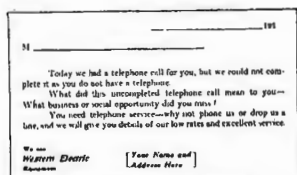 191
M
Today we had a telephone call for you, but we could not com-
plete it as you do not have a telephone.
What did this uncompleted telephone call mean to you—
What business or social opportunity did you miss?
You need telephone service—why not phone us or drop us a
line, and we will give you details of our low rates and excellent service.
We use
Western Electric
Equipment
[Your Name and
Address Here]